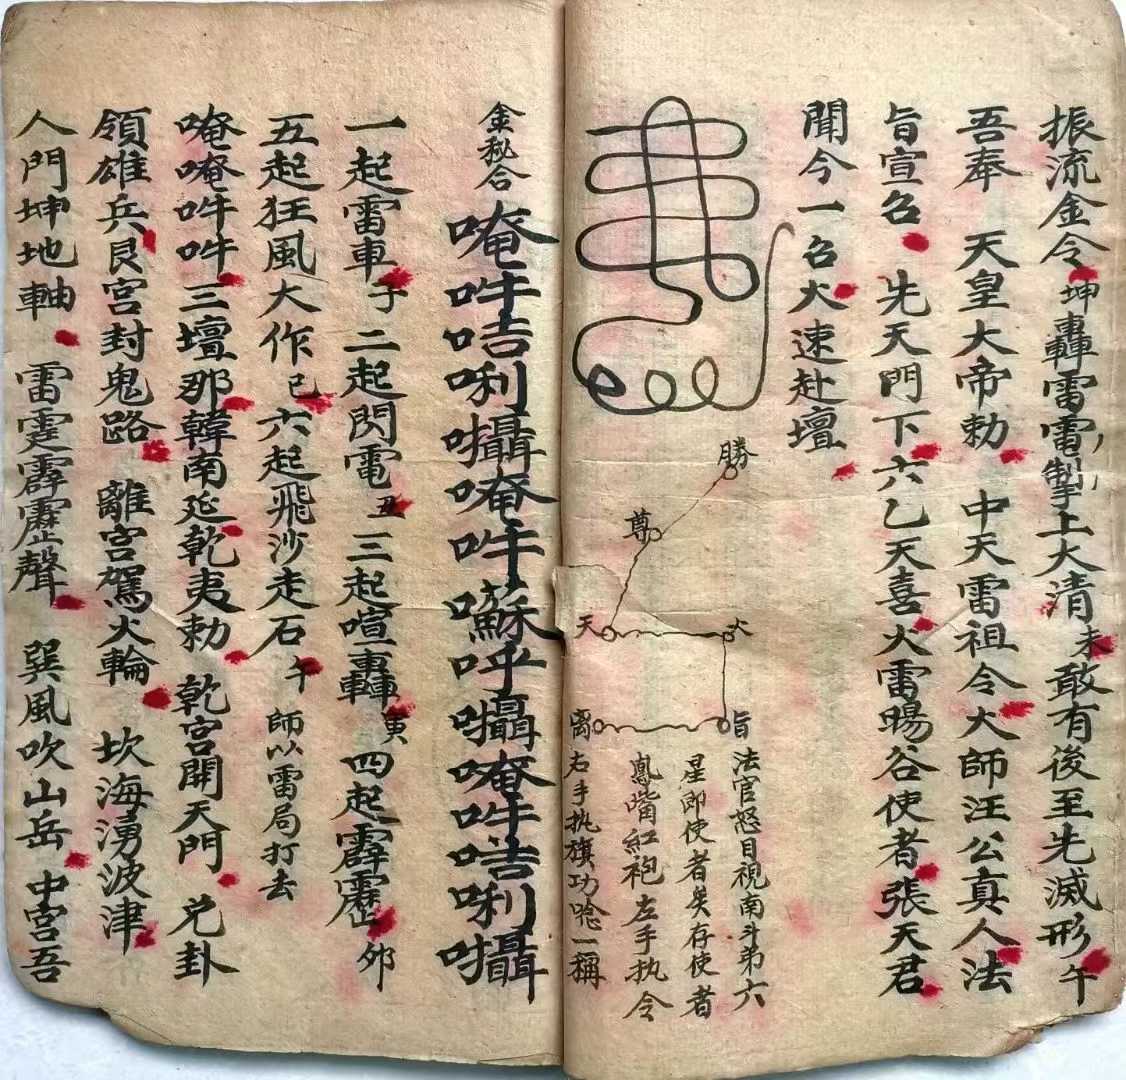 振流金令坤轟雷電掣上大清未敢有後至先滅形午
吾奉 天皇大帝勅 中天雷祖令大師汪公真人法
旨宣名 先天門下六乙天喜火雷暘谷使者張天君
聞今一名火速赴壇
勝
尊
天
火
旨
离
法官怒目視南斗弟六
星即使者矣存使者
鳳嘴紅袍左手执令
右手执旗功唸一稱
金秘合 唵吽咭唎囁唵吽囌呼囁唵吽咭唎囁
一起雷車子二起閃電丑三起喧轟寅四起霹靂夘
五起狂風大作已六起飛沙走石午師以雷局打去
唵唵吽吽三壇那韓南延乾夷勅 乾宮開天門 兑卦
領雄兵艮宮封鬼路 離宮駕火輪 坎海湧波津
人門坤地軸 雷霆霹靂聲 巽風吹山岳 中宮吾